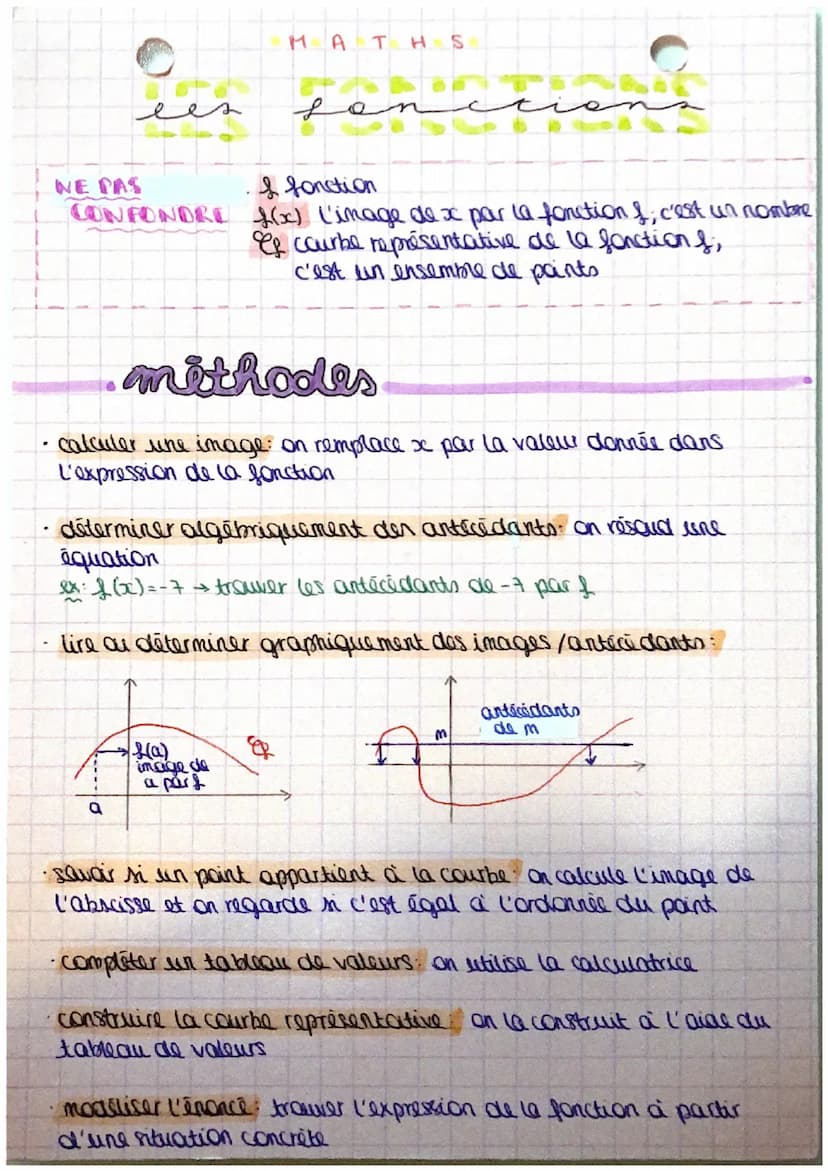 MATHS
LES FONCTIONS
les fonctions
NE PAS
CONFONDRE
f fonction
f(x) l'image de x par la fonction f, c'est un nombre
Cf courbe représentative de la fonction f,
c'est un ensemble de points
méthodes
· calculer une image: on remplace x par la valeur donnée dans
l'expression de la fonction
· déterminer algébriquement des antécédants: on résoud une
équation
ex: f(x)=-7 → trouver les antécédants de -7 par f
· lire ou déterminer graphiquement des images/antécédants:
f(a)
image de
a par f
a
Cf
m
antécédants
de m
· savoir si un point appartient à la courbe: on calcule l'image de
l'abscisse et on regarde si c'est égal à l'ordonnée du point
· compléter un tableau de valeurs: on utilise la calculatrice
· construire la courbe représentative: on la construit à l'aide du
tableau de valeurs
· modéliser l'énoncé: trouver l'expression de la fonction à partir
d'une situation concrète